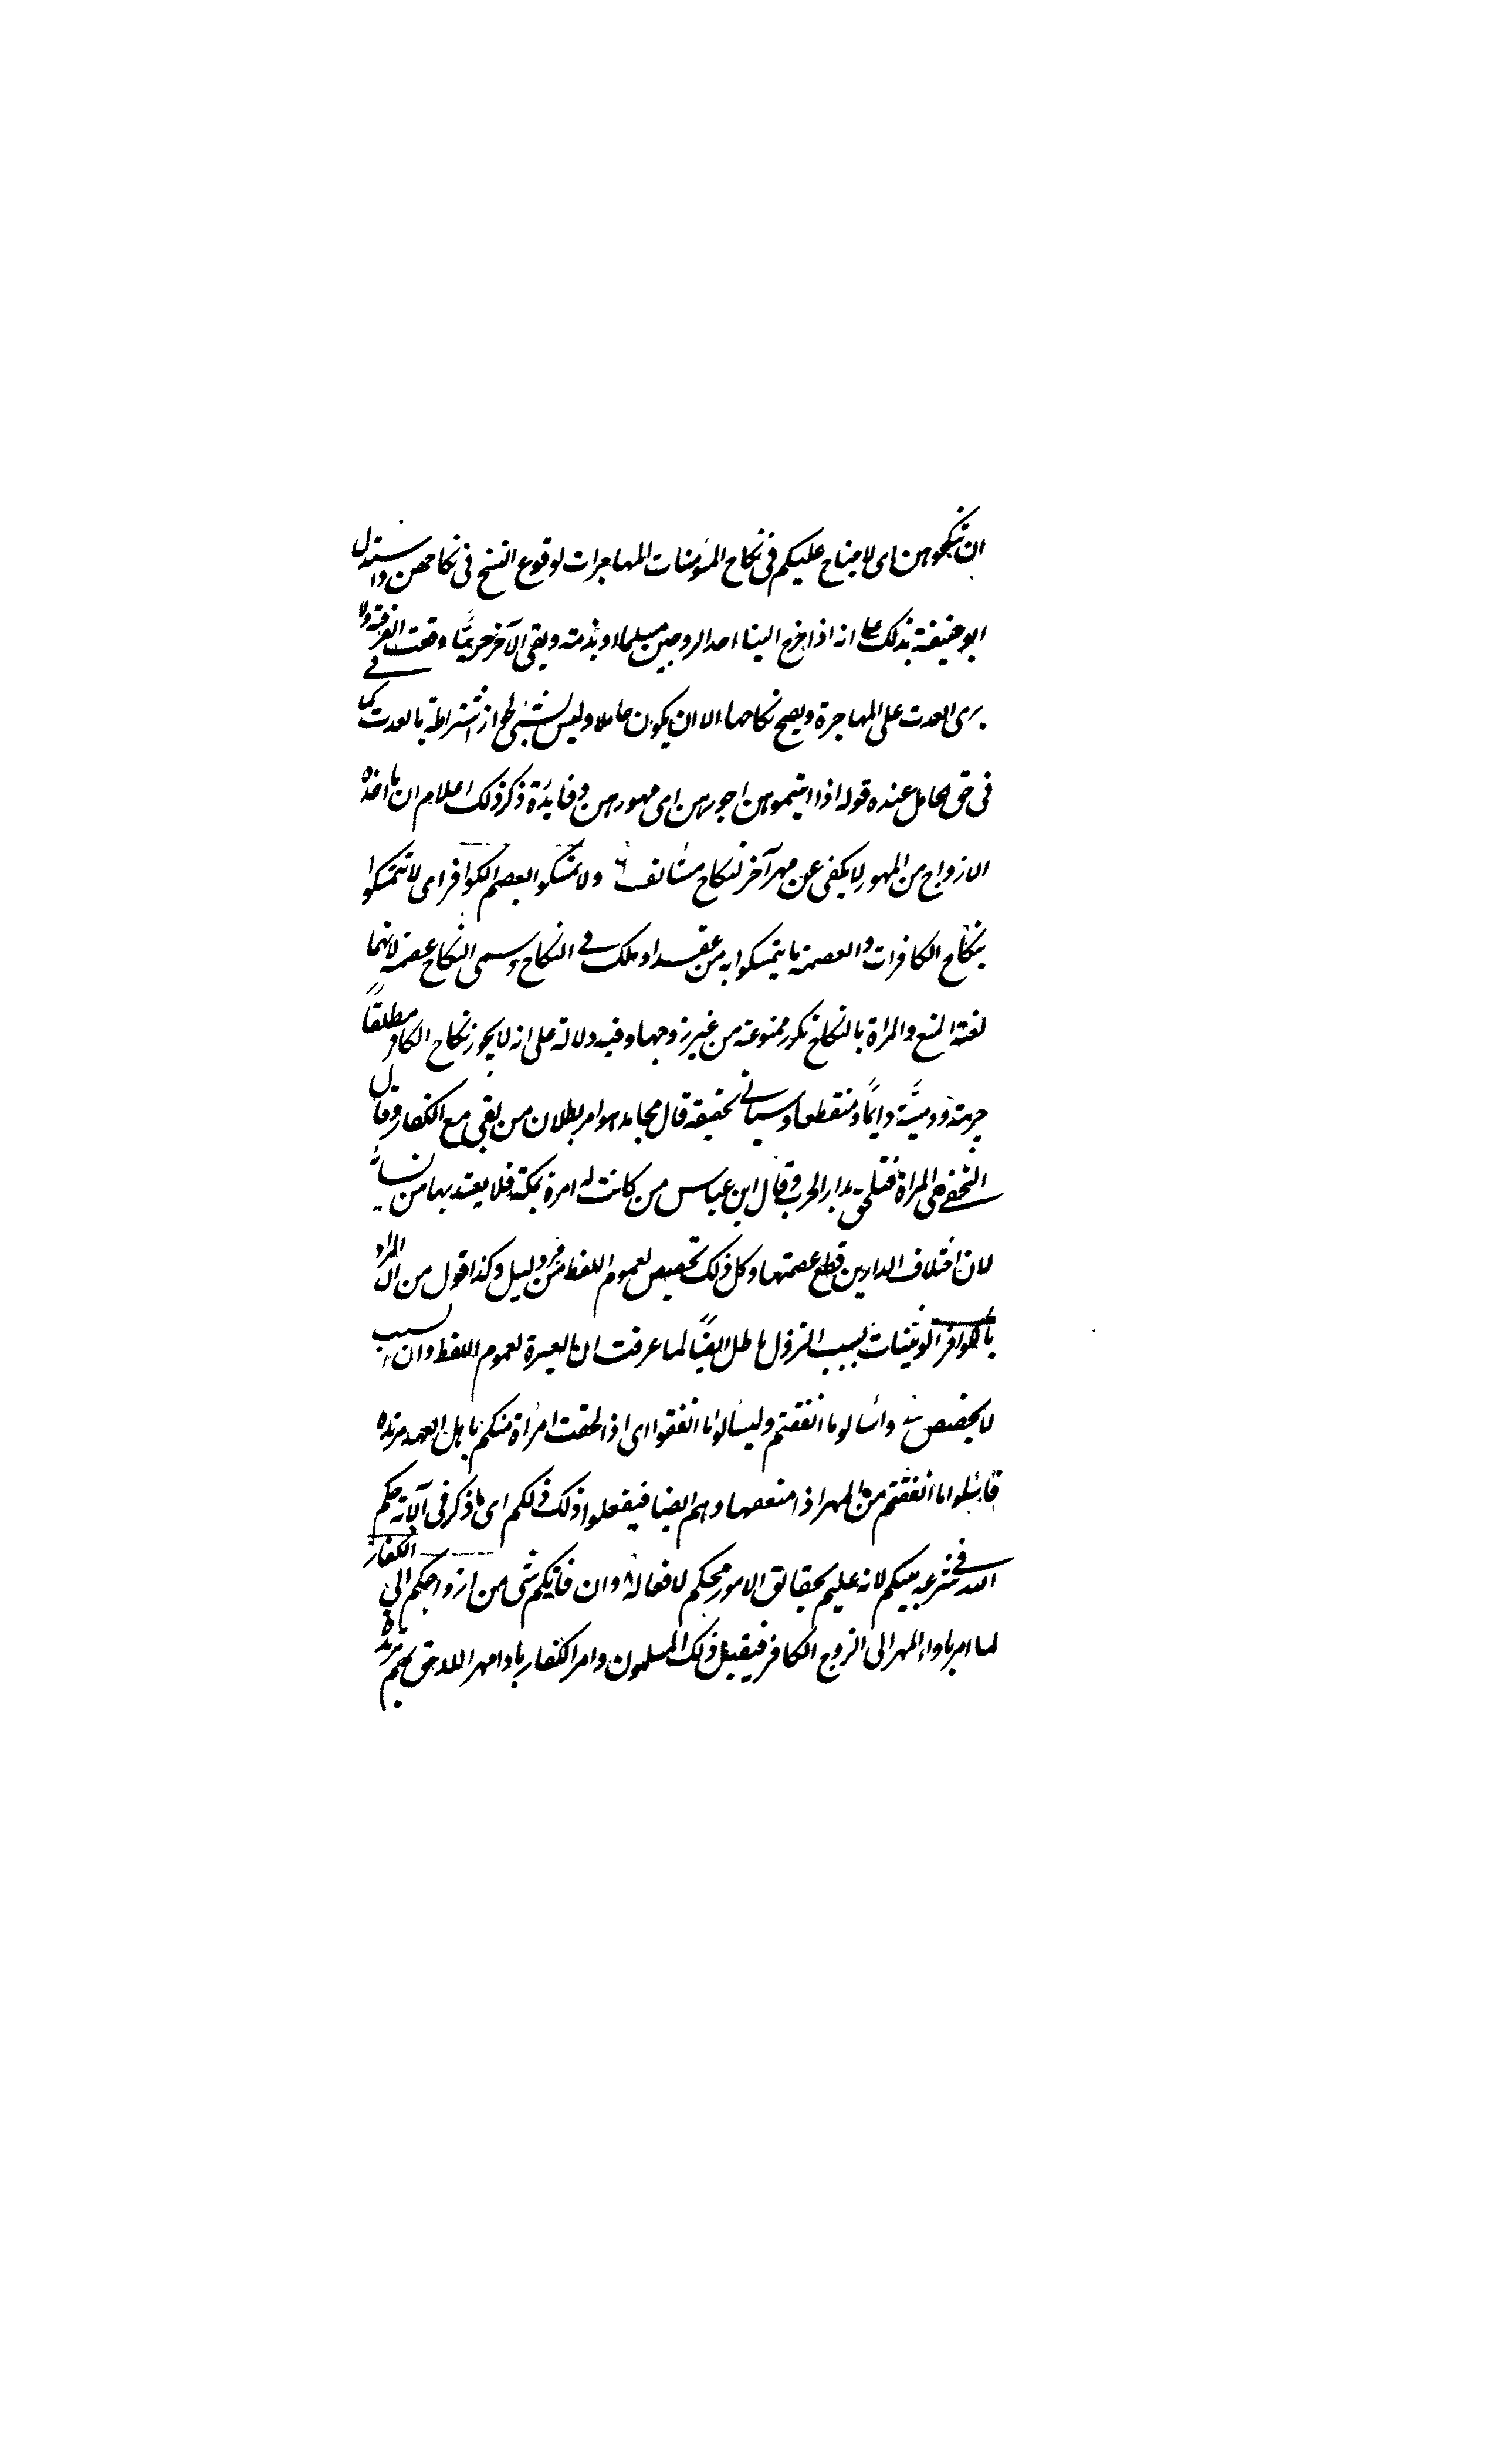 ان تنكحوهن اى لا جناح عليكم فى نكاح المؤمنات المهاجرات لوقوع الفسخ فى نكاحهن واستدل
ابو حنيفة بذلك على انه اذا خرج الينا احد الزوجين مسلما او بذمة وبقى الآخر حربيًّا وقعت الفرقة ولا
يرى العدت على المهاجرة ويصح نكاحها الا ان يكون حاملا وليس بشئ لجواز اشتراطه بالعدت كما فى
فى حق الحامل عنده قوله اذا اتيتموهن اجورهن اى مهورهن وفايدة ذكر ذلك اعلام ان ما اخذه
الازواج من المهور لا يكفى عن مهر آخر لنكاح مستأنف ٦ ولا تمسكوا بعصم الكوافر اى لا تتمسكوا
بنكاح الكافرات والعصمة ما يتمسكوا به من عقد او ملك فى النكاح وسمى النكاح عصمة لانها
لغة المنع والمراة بالنكاح تكون ممنوعة من غير زوجها وفيه دلالة على انه لا يجوز نكاح الكافر مطلقًا
حربية وذميّة دايمًا ومنقطعا وسياتى تحقيقه قال مجاهد هو امر بطلان من بقى مع الكفار وقال
النخعى هى المراة فتلحق بدار الحرب وقال ابن عباس من كانت له امرة بمكة فلا يعتد بها من نسائه
لان اختلاف الدارين قطع عصمتها وكل ذلك تخصيص لعموم اللفظ من غير دليل وكذا قول من قال المراد
بالكوافر الوثنيات بسبب النزول باطل ايضًا لما عرفت ان العبرة لعموم اللفظ وان السبب
لا يخصص ٧ واسألوا ما انفقتم وليسألوا ما انفقوا اى اذا لحقت امرأة منكم باهل العهد مرتده
فاسئلوا ما انفقتم من المهر اذا منعوها وهم ايضا فيفعلوا ذلك ذلكم اى ما ذكر فى الآية حكم
الله فى شرعه بينكم لانه عليم بحقائق الامور محكم لافعاله ٨ وان فاتكم شى من ازواجكم الى الكفار
لما امر باداء المهر الى الزوج الكافر فيقبل ذلك المسلمون وامر الكفار باداء مهر اللاحق بهم مرتدة